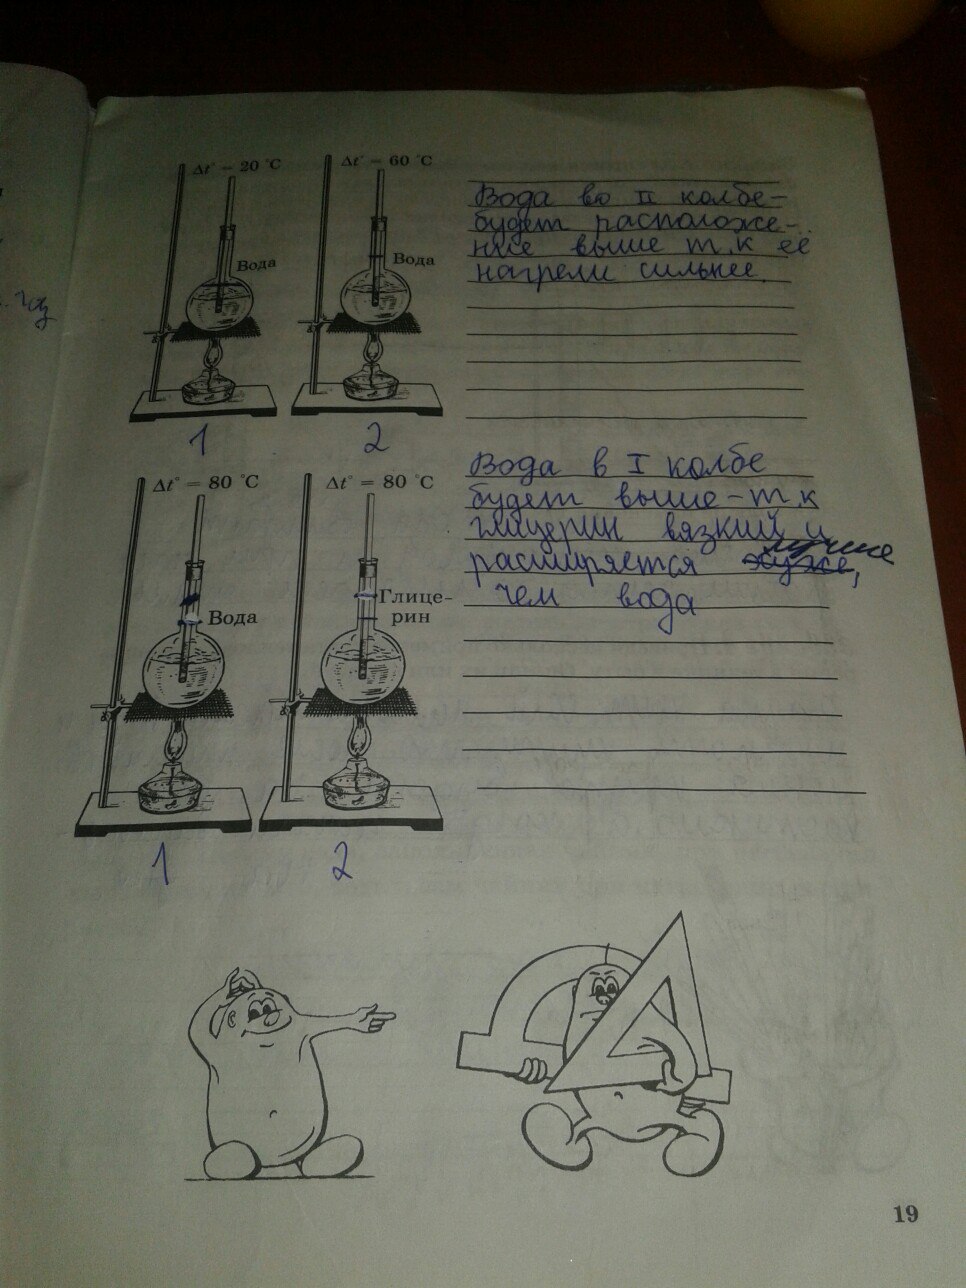 Δt° = 20 °C
Δt° = 60 °C
Вода
Вода
1
2
Вода во II колбе-
будет расположе-
ние выше т.к её
нагрели сильнее.
Δt° = 80 °C
Δt° = 80 °C
Вода
Глице-
рин
1
2
Вода в I колбе
будет выше - т.к
глицерин вязкий и
расширяется хуже, лучше
чем вода
19